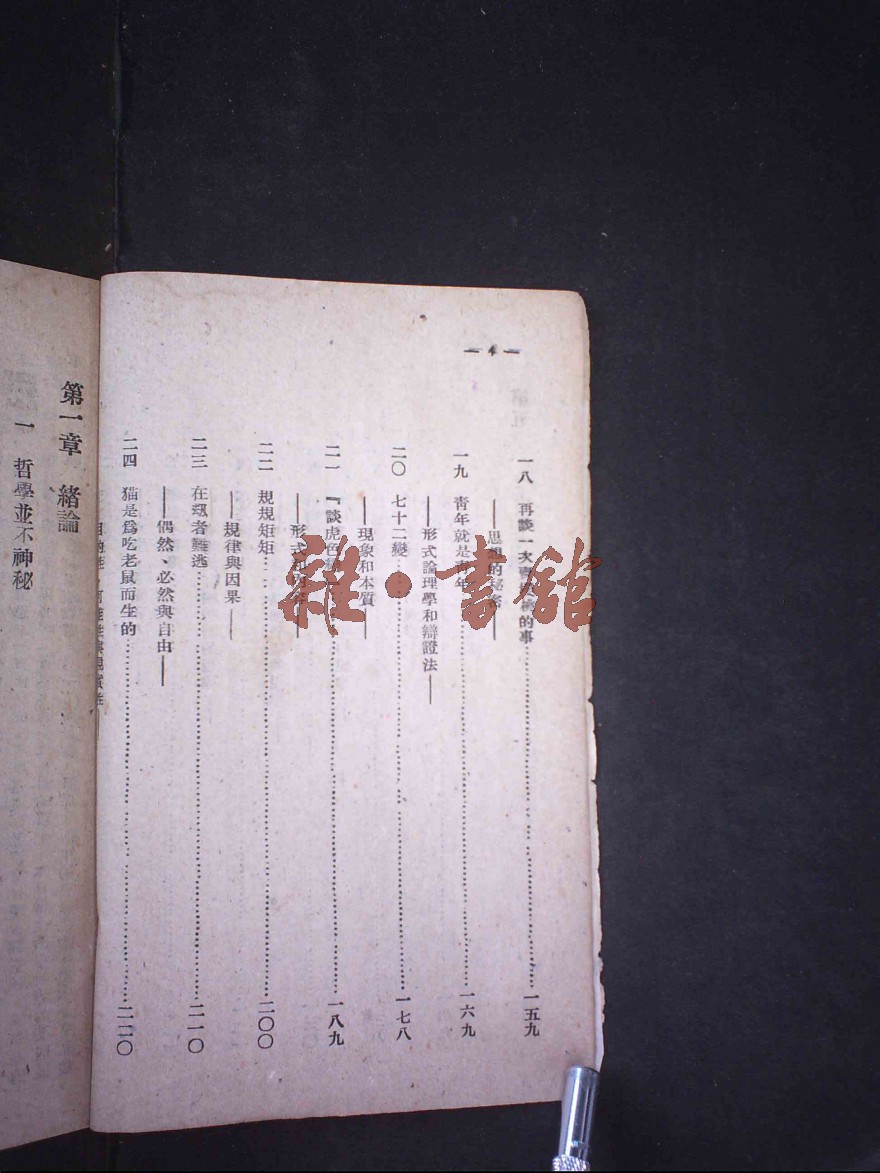 — 4 —
一八 再談一次 的事……一五九
——思想的秘密——
一九 靑年就是靑年……一六九
——形式論理學和辯證法——
二〇 七十二變……一七八
——現象和本質——
二一 『談虎色變』……一八九
——形式和內容——
二二 規規矩矩……二〇〇
——規律與因果——
二三 在刼者難逃……二一〇
——偶然、必然與自由——
二四 猫是爲吃老鼠而生的……二二〇
第一章 緒論
一 哲學並不神秘
雜·書館